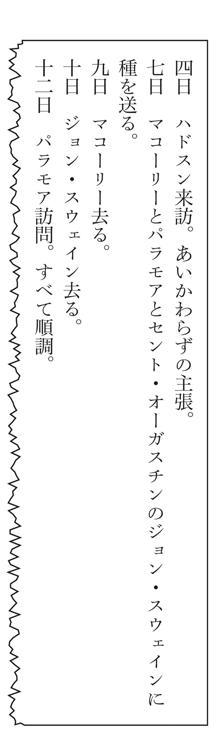 四日　ハドスン来訪。あいかわらずの主張。
七日　マコーリーとパラモアとセント・オーガスチンのジョン・スウェインに
種を送る。
九日　マコーリー去る。
十日　ジョン・スウェイン去る。
十二日　パラモア訪問。すべて順調。